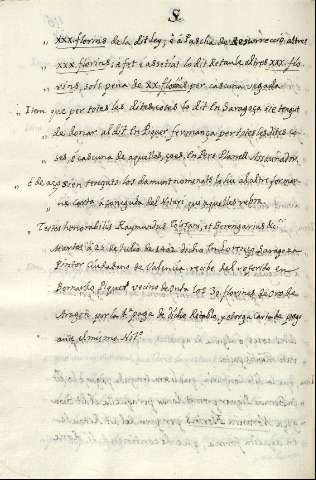 S.
" xxx. florins de la dit ley; e a Pascha de Resurrecció altres
" xxx. florins; a fet e assetiat lo dit Retaule altres xxx. flo
" rins, sots pena de xx. florins per cascuna vegada
" Item que per totes les dites coses lo dit En Saragoça sie tengut
" de donar al dit En Piquer fermança per totes les dites co
" ses, e cascuna de aquelles, ço es, En Pere Planell
" e de aço sien tenguts los damunt nomenats la hu al altre fermar
" ne carta a coneguda del Notari qui aquelles rebra.
" Testes honorabilis Raymundus et Berengarius &c.
" Martes á 22 de Julio de 1402 dicho Lorenzo Saragoza
Pintor Ciudadano de Valencia recibe del referido en
Bernardo Piquer vecino de Onda los 30 florines de oro de
Aragón por la paga de dicho Retablo, y otorga Carta de pago
ante el mismo Not.º